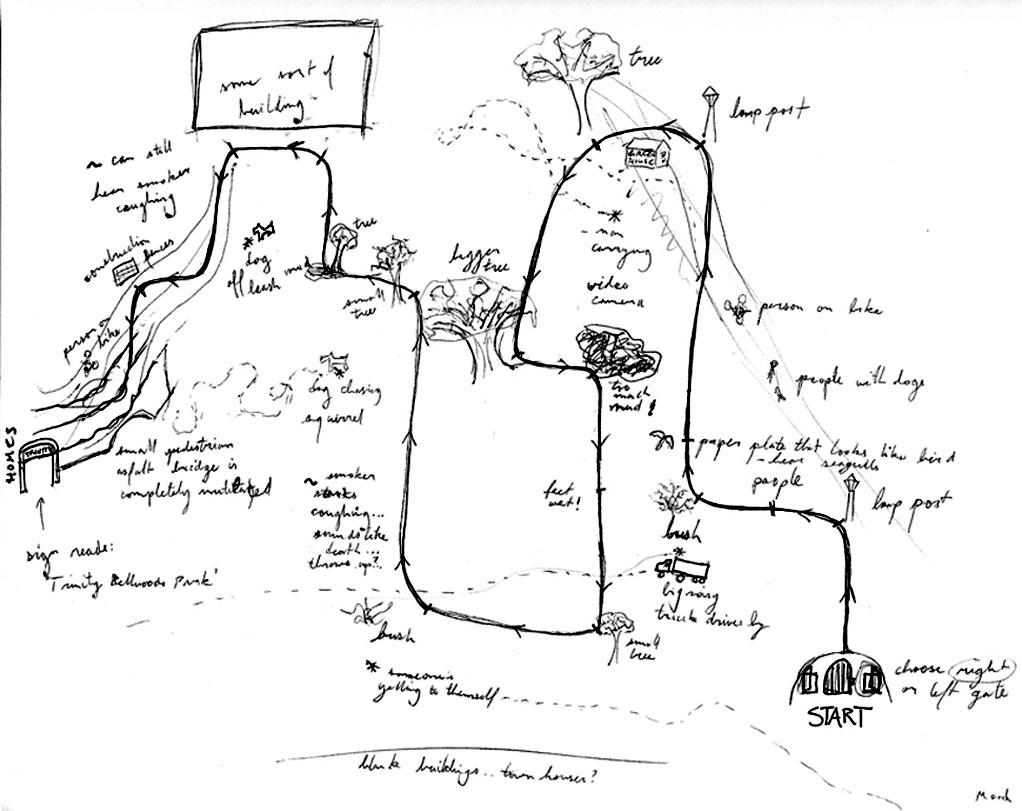 some sort of
building
tree
lamp post
~ can still
hear smoker
coughing
construction
fences
person on
bike
* dog
off leash
mud
tree
small
tree
bigger
tree
GREEN
HOUSE?
* man
carrying
video
camera
too
much
mud!
person on bike
people with dogs
paper plate that looks like bird
- hear seagulls
people
lamp post
bush
* big noisy
truck drives by
feet
wet!
small
tree
HOMES
TRINITY
sign reads:
'Trinity Bellwoods Park'
small pedestrian
asfalt bridge is
completely mutilated
* dog chasing
squirrel
~ smoker
starts
coughing...
sounds like
death...
throws up?..
bush
* someone's
yelling to themself
choose right
or left gate
START
buildings.. town houses?
March